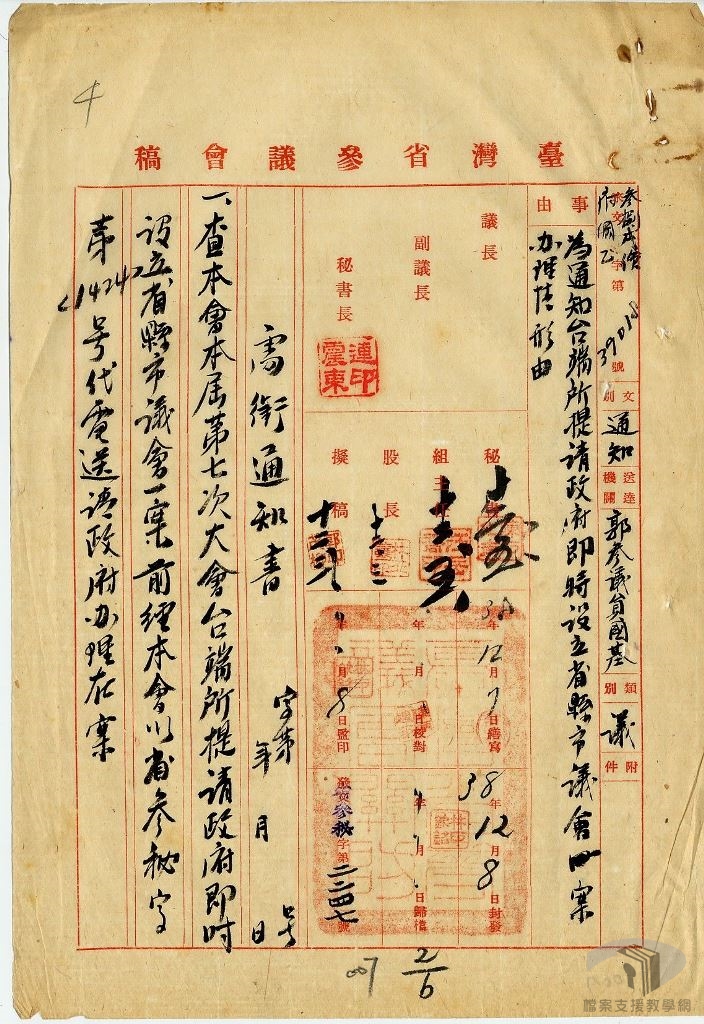 臺灣省參議會稿
收文 字第39018號
文別 通知
送達機關 郭參議員國基
類別 議
附件
事由
為通知台端所提請政府即時設立省縣市議會一案
办理情形由
議長
副議長
秘書長
連震東印
秘
組主
股長
擬稿
38年12月7日繕寫
年 月 日校對
年 月8日監印
38年12月8日封發
年 月 日歸檔
發 參秘字第二二四七號
需銜通知書 字第 号
年 月 日
一、查本會本屆第七次大會台端所提請政府即时
設立省縣市議會一案前經本會以省参秘字
第1424号代電送請政府办理在案
007
2/6
檔案支援教學網